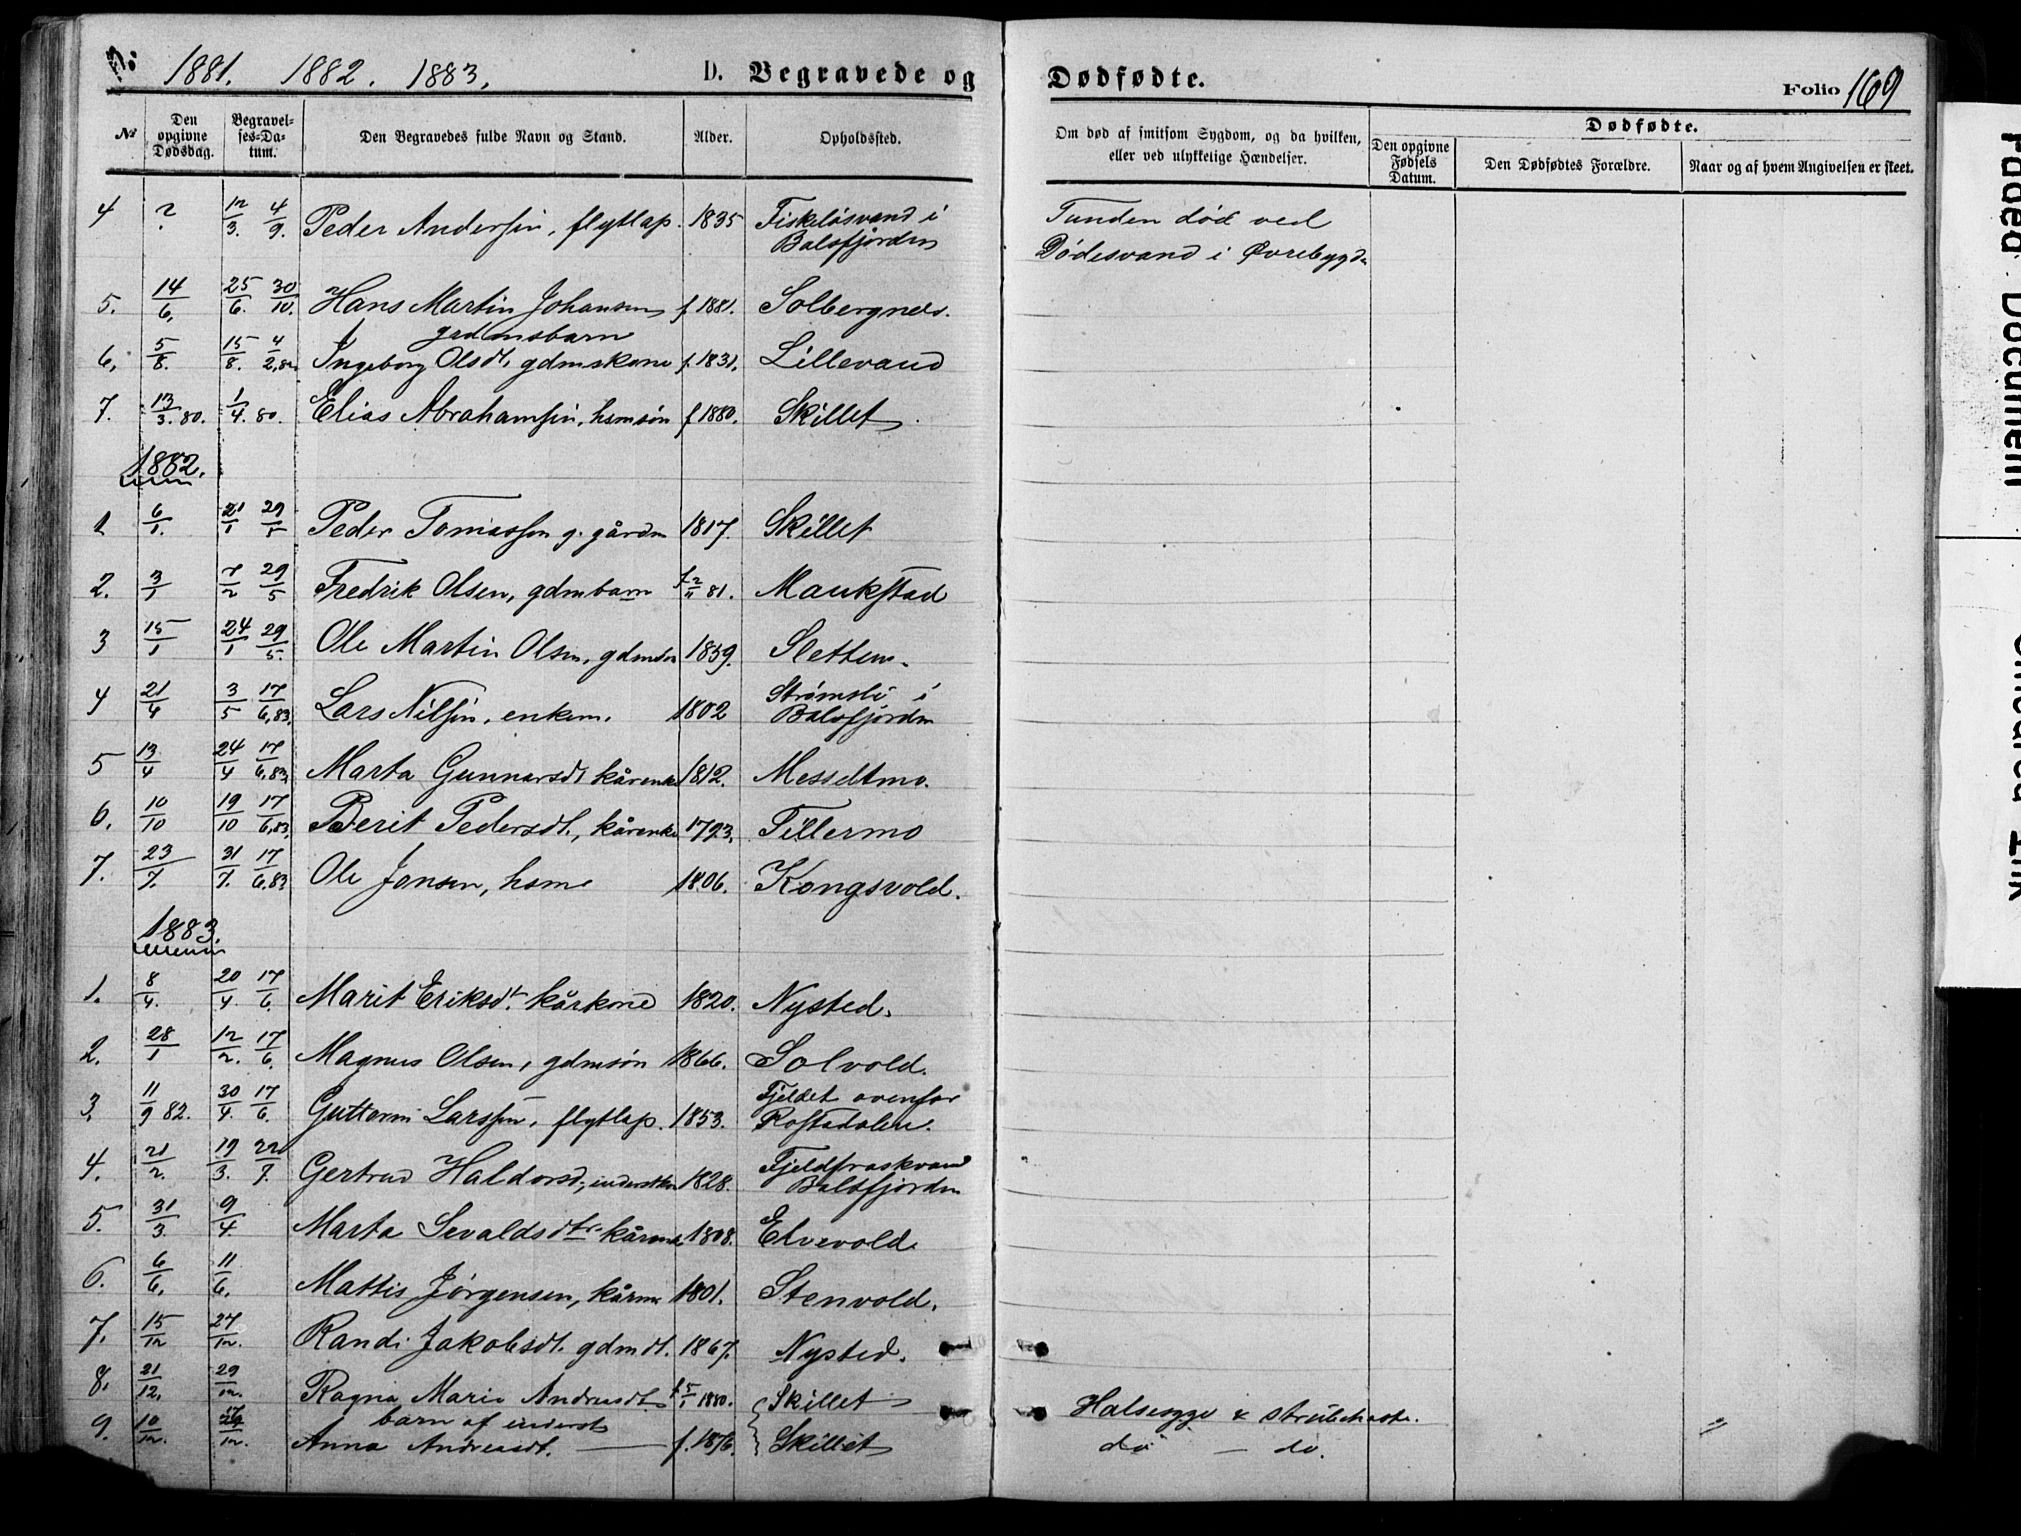 No 1881. 1882. 1883. D. Begravede og Dødfødte. Folio 169
No
Den opgivne Dødsdag.
Begravel-
ses-Da-
tum.
Den Begravedes fulde Navn og Stand.
Alder.
Opholdssted.
Om død af smitsom Sygdom, og da hvilken,
eller ved ulykkelige Hændelser.
Dødfødte.
Den opgivne
Fødsels
Datum.
Den Dødfødtes Forældre.
Naar og af hvem Angivelsen er skeet.
4 ? 12/3. 4/9. Peder Andersen, flytlap. 1835 Fiskeløsvand i
Balsfjorden
Funden død ved
Dødesvand i Øvrebygd
5. 14/6. 25/6. 30/10. Hans Martin Johansen f 1881. Solbergnes.
grdmsbarn
6. 5/8. 15/8. 4/2,82 Ingeborg Olsdt. gdmskone f. 1831. Lillevand
7. 13/3. 80. 1/4. 80. Elias Abrahamsen, hsmsøn f 1880. Skillet
1882.
1 6/1. 21/1 29/5 Peder Tomassen g. gårdm 1817. Skillet
2. 3/1 7/2 29/5 Fredrik Olsen, gdmbarn f 2/11 81. Maukstad
3 15/1 24/1 29/5. Ole Martin Olsen, gdmsøn 1859. Sletten
4 21/4 3/5 17/6,83. Lars Nilsen, enkem. 1802 Strømsli i
Balsfjorden
5 13/4 24/4 17/6,83. Marta Gunnarsdt kårenke 1812. Messeltmo.
6. 10/10 19/10 17/6,83. Berit Pedersdt., kårenke 1793. Tillermo
7. 23/7. 31/7. 17/6,83 Ole Jensen, hsm 1806. Kongsvold.
1883.
1. 8/4. 20/4. 17/6. Marit Eriksdt. kårkone 1820. Nysted.
2. 28/1 12/2. 17/6. Magnus Olsen, gdmsøn 1866. Solvold.
3. 11/9 82. 30/4. 17/6. Guttorm Larssen, flytlap. 1853. Fjeldet ovenfor
Rostadalen.
4. 21/2. 19/3. 22/7. Gertrud Haldorsd., inderstkone 1828. Fjeldfraskvand
Balsfjorden
5. 31/3. 9/4. Marta Sevaldsdtr. kårenke 1808. Elvevold
6. 6/6. 11/6. Mattis Jørgensen, kårm 1801. Stenvold.
7. 15/12 27/12. Randi Jakobsdt. gdmdt. 1867. Nysted.
8. 21/12. 29/12. Ragna Marie Andreasdt. f. 5/1 1880. Skillet Halssyge & strubehoste.
barn af inderst
9. 10/12. 12. Anna Andreasdt. — f. 1876. Skillet do — do.
Faded Document